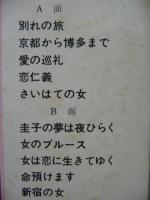 A 面
別れの旅
京都から博多まで
愛の巡礼
恋仁義
さいはての女
B 面
圭子の夢は夜ひらく
女のブルース
女は恋に生きてゆく
命預けます
新宿の女